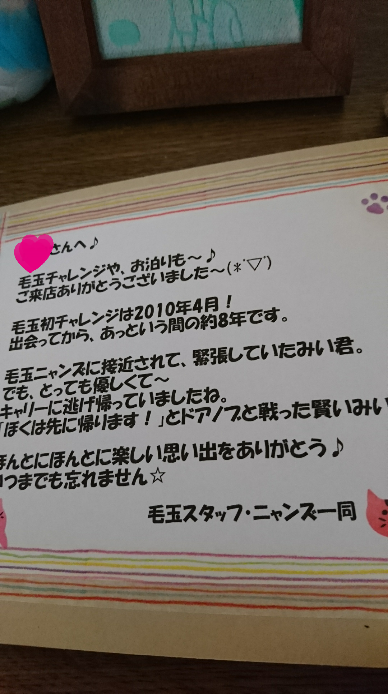 さんへ♪
毛玉チャレンジや、お泊りも～♪
ご来店ありがとうございました～(*ˊ▽ˋ)
毛玉初チャレンジは2010年4月！
出会ってから、あっという間の約8年です。
毛玉ニャンズに接近されて、緊張していたみい君。
でも、とっても優しくて～
キャリーに逃げ帰っていましたね。
「ぼくは先に帰ります！」とドアノブと戦った賢いみい
ほんとにほんとに楽しい思い出をありがとう♪
いつまでも忘れません☆
毛玉スタッフ・ニャンズ一同